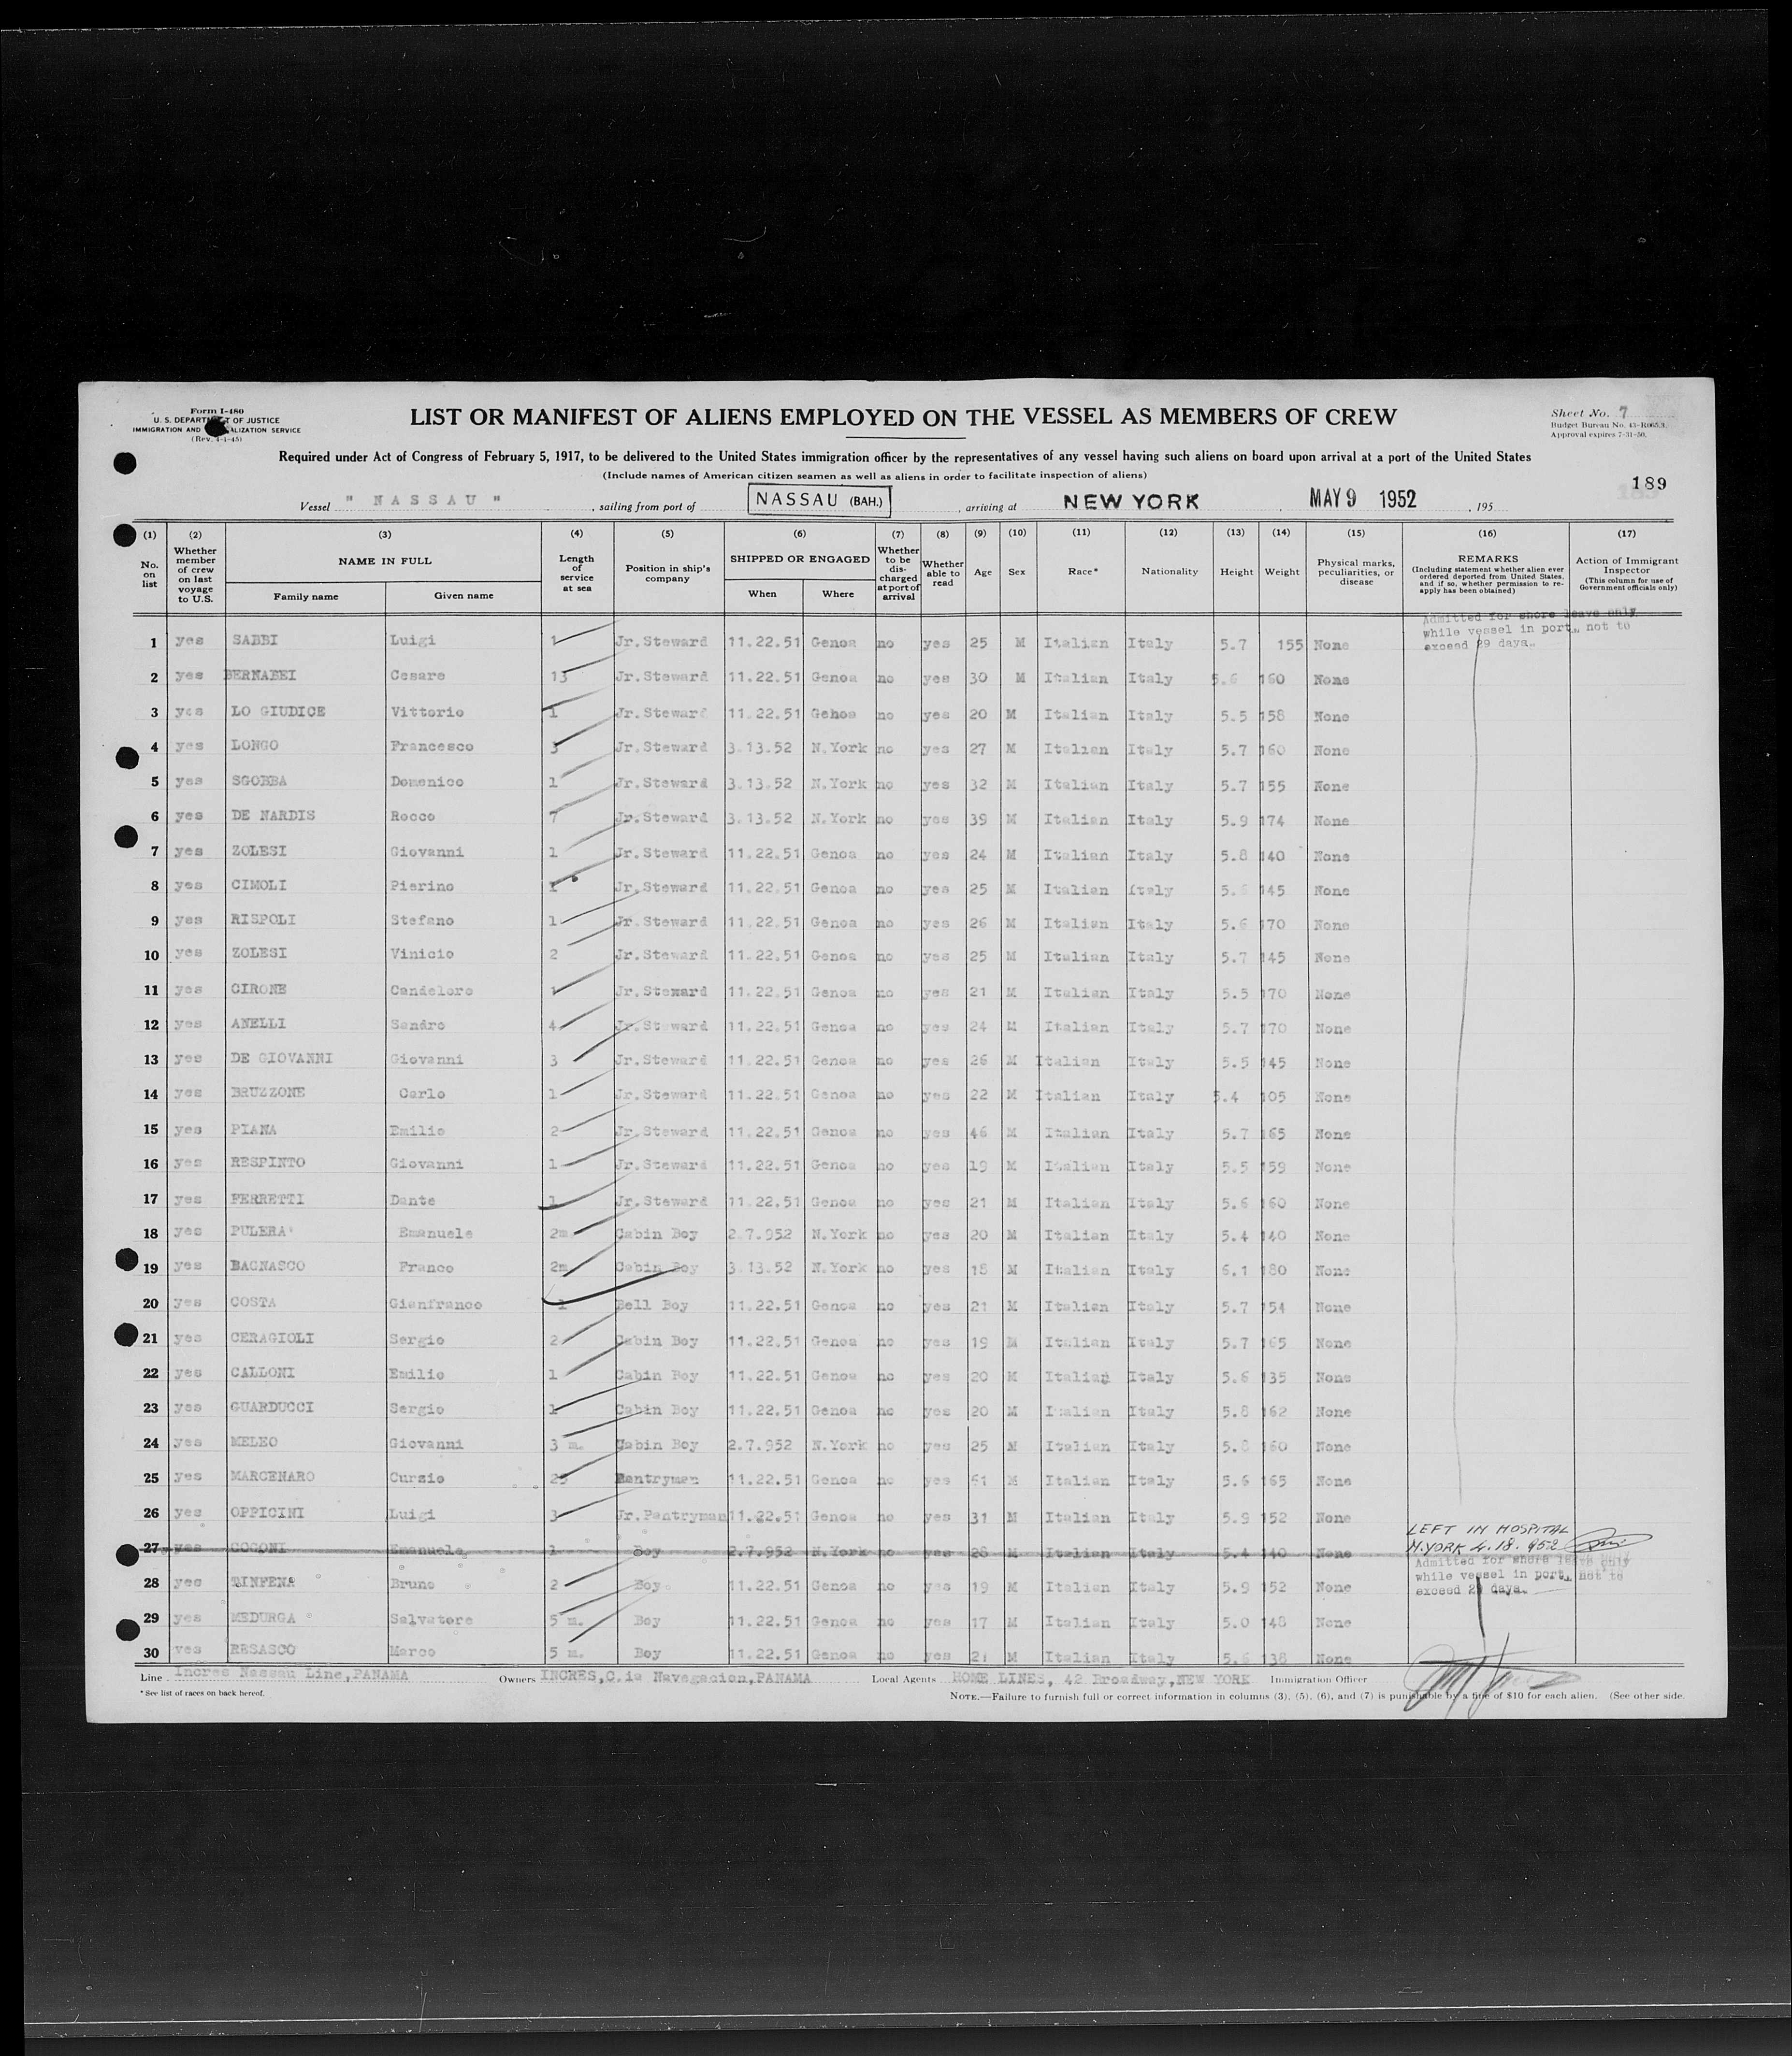 Form I-480
U. S. DEPARTMENT OF JUSTICE
IMMIGRATION AND NATURALIZATION SERVICE
(Rev. 4-1-45)
LIST OR MANIFEST OF ALIENS EMPLOYED ON THE VESSEL AS MEMBERS OF CREW
Sheet No. 7
Budget Bureau No. 43-R065.3.
Approval expires 7-31-50.
Required under Act of Congress of February 5, 1917, to be delivered to the United States immigration officer by the representatives of any vessel having such aliens on board upon arrival at a port of the United States
(Include names of American citizen seamen as well as aliens in order to facilitate inspection of aliens)
189
Vessel " NASSAU " , sailing from port of NASSAU (BAH.) , arriving at NEW YORK , MAY 9 1952 , 195
(1) (2) (3) (4) (5) (6) (7) (8) (9) (10) (11) (12) (13) (14) (15) (16) (17)
No. on list Whether member of crew on last voyage to U.S. NAME IN FULL Family name Given name Length of service at sea Position in ship's company SHIPPED OR ENGAGED When Where Whether to be discharged at port of arrival Whether able to read Age Sex Race* Nationality Height Weight Physical marks, peculiarities, or disease REMARKS (Including statement whether alien ever ordered deported from United States, and if so, whether permission to re-apply has been obtained) Action of Immigrant Inspector (This column for use of Government officials only)
Admitted for shore leave only
while vessel in port, not to
exceed 29 days.
1 yes SABBI Luigi 1 Jr.Steward 11.22.51 Genoa no yes 25 M Italian Italy 5.7 155 None
2 yes BERNABEI Cesare 13 Jr.Steward 11.22.51 Genoa no yes 30 M Italian Italy 5.6 160 None
3 yes LO GIUDICE Vittorio 1 Jr.Steward 11.22.51 Genoa no yes 20 M Italian Italy 5.5 158 None
4 yes LONGO Francesco 3 Jr.Steward 3.13.52 N.York no yes 27 M Italian Italy 5.7 160 None
5 yes SGOBBA Domenico 1 Jr.Steward 3.13.52 N.York no yes 32 M Italian Italy 5.7 155 None
6 yes DE NARDIS Rocco 7 Jr.Steward 3.13.52 N.York no yes 39 M Italian Italy 5.9 174 None
7 yes ZOLESI Giovanni 1 Jr.Steward 11.22.51 Genoa no yes 24 M Italian Italy 5.8 140 None
8 yes CIMOLI Pierino 1 Jr.Steward 11.22.51 Genoa no yes 25 M Italian Italy 5.6 145 None
9 yes RISPOLI Stefano 1 Jr.Steward 11.22.51 Genoa no yes 26 M Italian Italy 5.6 170 None
10 yes ZOLESI Vinicio 2 Jr.Steward 11.22.51 Genoa no yes 25 M Italian Italy 5.7 145 None
11 yes CIRONE Candeloro 1 Jr.Steward 11.22.51 Genoa no yes 21 M Italian Italy 5.5 170 None
12 yes ANELLI Sandro 4 Jr.Steward 11.22.51 Genoa no yes 24 M Italian Italy 5.7 170 None
13 yes DE GIOVANNI Giovanni 3 Jr.Steward 11.22.51 Genoa no yes 26 M Italian Italy 5.5 145 None
14 yes BRUZZONE Carlo 1 Jr.Steward 11.22.51 Genoa no yes 22 M Italian Italy 5.4 105 None
15 yes PIANA Emilio 2 Jr.Steward 11.22.51 Genoa no yes 46 M Italian Italy 5.7 165 None
16 yes RESPINTO Giovanni 1 Jr.Steward 11.22.51 Genoa no yes 19 M Italian Italy 5.5 159 None
17 yes FERRETTI Dante 1 Jr.Steward 11.22.51 Genoa no yes 21 M Italian Italy 5.6 160 None
18 yes PULERA' Emanuele 2m. Cabin Boy 2.7.952 N.York no yes 20 M Italian Italy 5.4 140 None
19 yes BAGNASCO Franco 2m. Cabin Boy 3.13.52 N.York no yes 18 M Italian Italy 6.1 180 None
20 yes COSTA Gianfranco 1 Bell Boy 11.22.51 Genoa no yes 21 M Italian Italy 5.7 154 None
21 yes CERAGIOLI Sergio 2 Cabin Boy 11.22.51 Genoa no yes 19 M Italian Italy 5.7 165 None
22 yes CALLONI Emilio 1 Cabin Boy 11.22.51 Genoa no yes 20 M Italian Italy 5.6 135 None
23 yes GUARDUCCI Sergio 1 Cabin Boy 11.22.51 Genoa no yes 20 M Italian Italy 5.8 162 None
24 yes MELEO Giovanni 3 m. Cabin Boy 2.7.952 N.York no yes 25 M Italian Italy 5.8 160 None
25 yes MARCENARO Curzio Pantryman 11.22.51 Genoa no yes 51 M Italian Italy 5.6 165 None
26 yes OPPICINI Luigi 3 Jr.Pantryman 11.22.51 Genoa no yes 31 M Italian Italy 5.9 152 None
LEFT IN HOSPITAL
N.YORK 4.18.952
27 yes COCONI Emanuele 1 Boy 2.7.952 N.York no yes 28 M Italian Italy 5.4 140 None
Admitted for shore leave only
while vessel in port, not to
exceed 29 days.
28 yes TINFENA Bruno 2 Boy 11.22.51 Genoa no yes 19 M Italian Italy 5.9 152 None
29 yes MEDURGA Salvatore 5 m. Boy 11.22.51 Genoa no yes 17 M Italian Italy 5.0 148 None
30 yes RESASCO Marco 5 m. Boy 11.22.51 Genoa no yes 21 M Italian Italy 5.6 138 None
Line Incres Nassau Line,PANAMA Owners INCRES,C.ia Navegacion,PANAMA Local Agents HOME LINES, 42 Broadway,NEW YORK Immigration Officer
* See list of races on back hereof.
NOTE.—Failure to furnish full or correct information in columns (3), (5), (6), and (7) is punishable by a fine of $10 for each alien. (See other side.